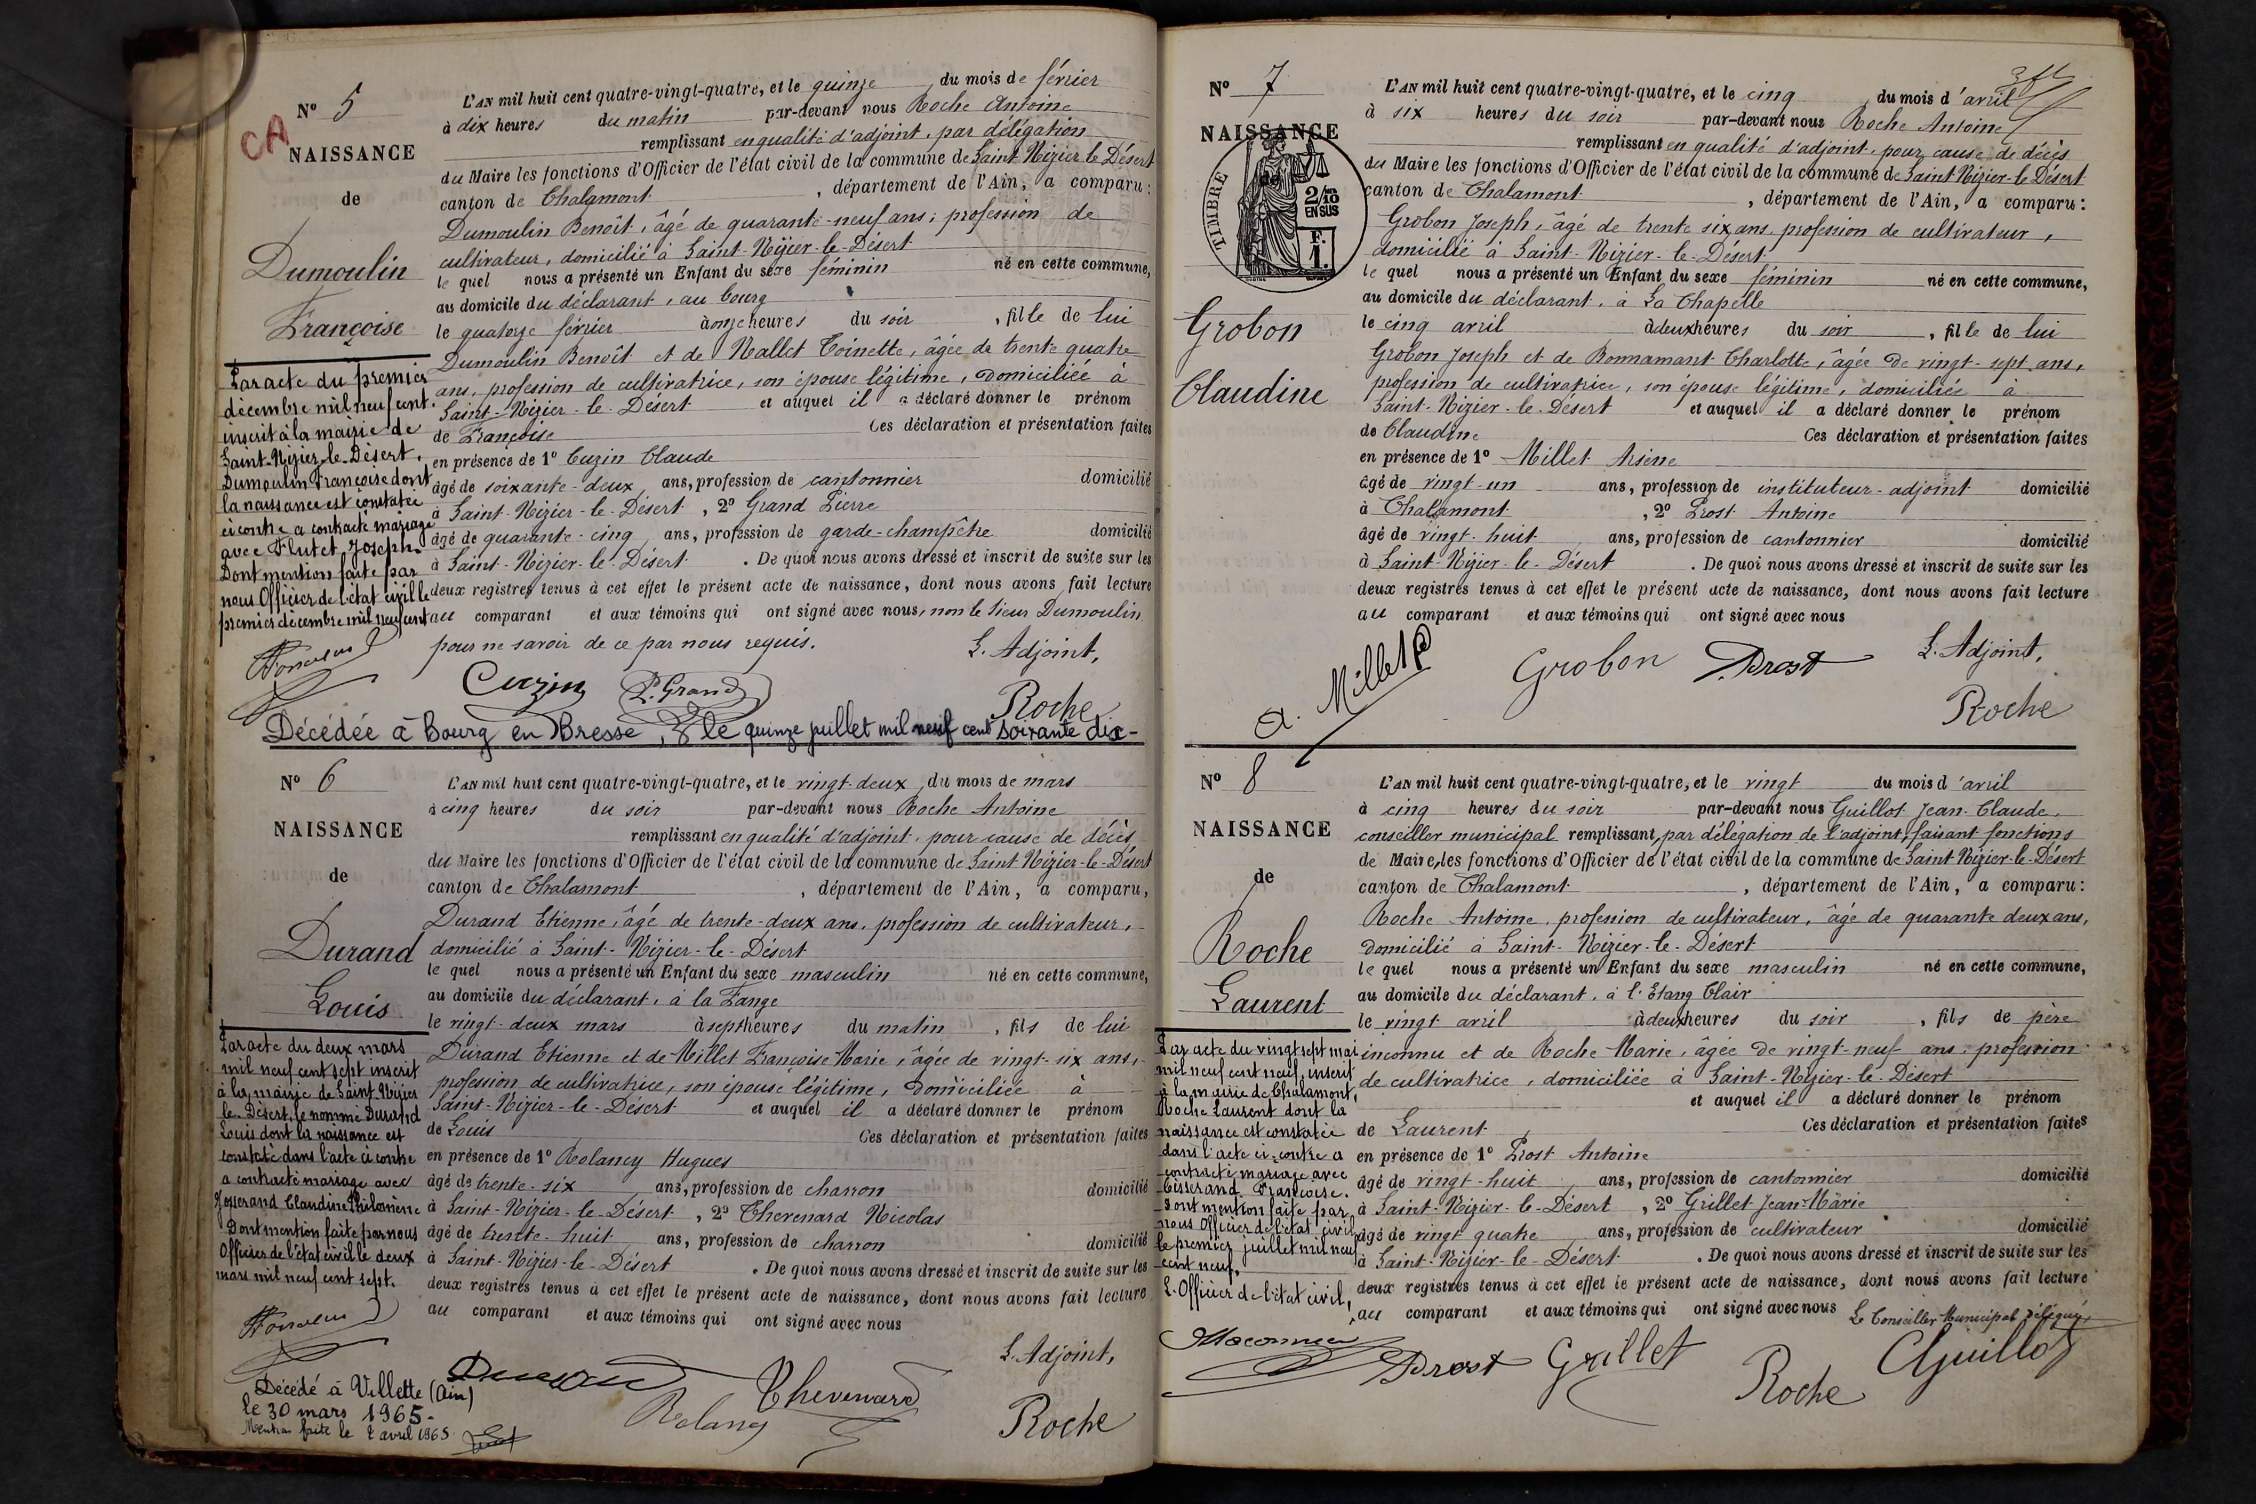 N° 5
CA
NAISSANCE
de
Dumoulin
Françoise
Par acte du premier
décembre mil neuf cent
inscrit à la mairie de
Saint-Nizier-le-Désert,
Dumoulin Françoise dont
la naissance est constatée
ci contre a contracté mariage
avec Flutet Joseph.
Dont mention faite par
nous Officier de l'état civil le
premier décembre mil neuf cent
L'AN mil huit cent quatre-vingt-quatre, et le quinze du mois de février
à dix heures du matin par-devant nous Roche Antoine
remplissant en qualité d'adjoint, par délégation
du Maire les fonctions d'Officier de l'état civil de la commune de Saint Nizier le Désert
canton de Chalamont, département de l'Ain, a comparu :
Dumoulin Benoît, âgé de quarante-neuf ans, profession de
cultivateur, domicilié à Saint-Nizier-le-Désert
le quel nous a présenté un Enfant du sexe féminin né en cette commune,
au domicile du déclarant, au bourg
le quatorze février à onze heures du soir, fille de lui
Dumoulin Benoît et de Mallet Toinette, âgée de trente quatre
ans, profession de cultivatrice, son épouse légitime, domiciliée à
Saint-Nizier-le-Désert et auquel il a déclaré donner le prénom
de Françoise Ces déclaration et présentation faites
en présence de 1° Cuzin Claude
âgé de soixante-deux ans, profession de cantonnier domicilié
à Saint-Nizier-le-Désert, 2° Grand Pierre
âgé de quarante-cinq ans, profession de garde-champêtre domicilié
à Saint-Nizier-le-Désert. De quoi nous avons dressé et inscrit de suite sur les
deux registres tenus à cet effet le présent acte de naissance, dont nous avons fait lecture
au comparant et aux témoins qui ont signé avec nous, non le sieur Dumoulin
pour ne savoir de ce par nous requis.
L'Adjoint,
Cuzin P. Grand Roche
Décédée à Bourg en Bresse, le quinze juillet mil neuf cent soixante dix-
N° 6
NAISSANCE
de
Durand
Louis
Par acte du deux mars
mil neuf cent sept inscrit
à la mairie de Saint-Nizier
le-Désert, le nommé Durand
Louis dont la naissance est
constatée dans l'acte ci contre
a contracté mariage avec
Josserand Claudine Philomène
Dont mention faite par nous
Officier de l'état civil le deux
mars mil neuf cent sept.
Décédé à Villette (Ain)
le 30 mars 1965.
Mention faite le 2 avril 1965
L'AN mil huit cent quatre-vingt-quatre, et le vingt-deux du mois de mars
à cinq heures du soir par-devant nous Roche Antoine
remplissant en qualité d'adjoint, pour cause de décès
du Maire les fonctions d'Officier de l'état civil de la commune de Saint Nizier-le-Désert
canton de Chalamont, département de l'Ain, a comparu,
Durand Etienne, âgé de trente-deux ans, profession de cultivateur,
domicilié à Saint-Nizier-le-Désert
le quel nous a présenté un Enfant du sexe masculin né en cette commune,
au domicile du déclarant, à la Fange
le vingt-deux mars à sept heures du matin, fils de lui
Durand Etienne et de Millet Françoise Marie, âgée de vingt-six ans,
profession de cultivatrice, son épouse légitime, domiciliée à
Saint-Nizier-le-Désert et auquel il a déclaré donner le prénom
de Louis Ces déclaration et présentation faites
en présence de 1° Rolancy Hugues
âgé de trente-six ans, profession de charron domicilié
à Saint-Nizier-le-Désert, 2° Thevenard Nicolas
âgé de trente-huit ans, profession de charron domicilié
à Saint-Nizier-le-Désert. De quoi nous avons dressé et inscrit de suite sur les
deux registres tenus à cet effet le présent acte de naissance, dont nous avons fait lecture
au comparant et aux témoins qui ont signé avec nous
L'Adjoint,
Durand Rolancy Thevenard Roche
N° 7
NAISSANCE
de
TIMBRE
2/10
EN SUS
F.
1.
Grobon
Claudine
L'AN mil huit cent quatre-vingt-quatre, et le cinq du mois d'avril
à six heures du soir par-devant nous Roche Antoine
remplissant en qualité d'adjoint, pour cause de décès
du Maire les fonctions d'Officier de l'état civil de la commune de Saint Nizier-le-Désert
canton de Chalamont, département de l'Ain, a comparu :
Grobon Joseph, âgé de trente six ans, profession de cultivateur,
domicilié à Saint-Nizier-le-Désert
le quel nous a présenté un Enfant du sexe féminin né en cette commune,
au domicile du déclarant, à La Chapelle
le cinq avril à deux heures du soir, fille de lui
Grobon Joseph et de Bonnamant Charlotte, âgée de vingt-sept ans,
profession de cultivatrice, son épouse légitime, domiciliée à
Saint-Nizier-le-Désert et auquel il a déclaré donner le prénom
de Claudine Ces déclaration et présentation faites
en présence de 1° Millet Arsène
âgé de vingt-un ans, profession de instituteur-adjoint domicilié
à Chalamont, 2° Prost Antoine
âgé de vingt-huit ans, profession de cantonnier domicilié
à Saint-Nizier-le-Désert. De quoi nous avons dressé et inscrit de suite sur les
deux registres tenus à cet effet le présent acte de naissance, dont nous avons fait lecture
au comparant et aux témoins qui ont signé avec nous
L'Adjoint,
A. Millet Grobon Prost Roche
N° 8
NAISSANCE
de
Roche
Laurent
Par acte du vingt sept mai
mil neuf cent neuf, inscrit
à la mairie de Chalamont,
Roche Laurent dont la
naissance est constatée
dans l'acte ci-contre a
contracté mariage avec
Tisserand Françoise.
Dont mention faite par
nous Officier de l'état civil
le premier juillet mil neuf
cent neuf.
L'Officier de l'état civil,
L'AN mil huit cent quatre-vingt-quatre, et le vingt du mois d'avril
à cinq heures du soir par-devant nous Guillot Jean-Claude,
conseiller municipal remplissant, par délégation de l'adjoint, faisant fonctions
de Maire, les fonctions d'Officier de l'état civil de la commune de Saint Nizier-le-Désert
canton de Chalamont, département de l'Ain, a comparu :
Roche Antoine, profession de cultivateur, âgé de quarante deux ans,
domicilié à Saint-Nizier-le-Désert
le quel nous a présenté un Enfant du sexe masculin né en cette commune,
au domicile du déclarant, à l'Etang Clair
le vingt avril à deux heures du soir, fils de père
inconnu et de Roche Marie, âgée de vingt-neuf ans, profession
de cultivatrice, domiciliée à Saint-Nizier-le-Désert
et auquel il a déclaré donner le prénom
de Laurent Ces déclaration et présentation faites
en présence de 1° Prost Antoine
âgé de vingt-huit ans, profession de cantonnier domicilié
à Saint-Nizier-le-Désert, 2° Grillet Jean-Marie
âgé de vingt quatre ans, profession de cultivateur domicilié
à Saint-Nizier-le-Désert. De quoi nous avons dressé et inscrit de suite sur les
deux registres tenus à cet effet le présent acte de naissance, dont nous avons fait lecture
au comparant et aux témoins qui ont signé avec nous Le Conseiller Municipal délégué,
Prost Grillet Roche Guillot